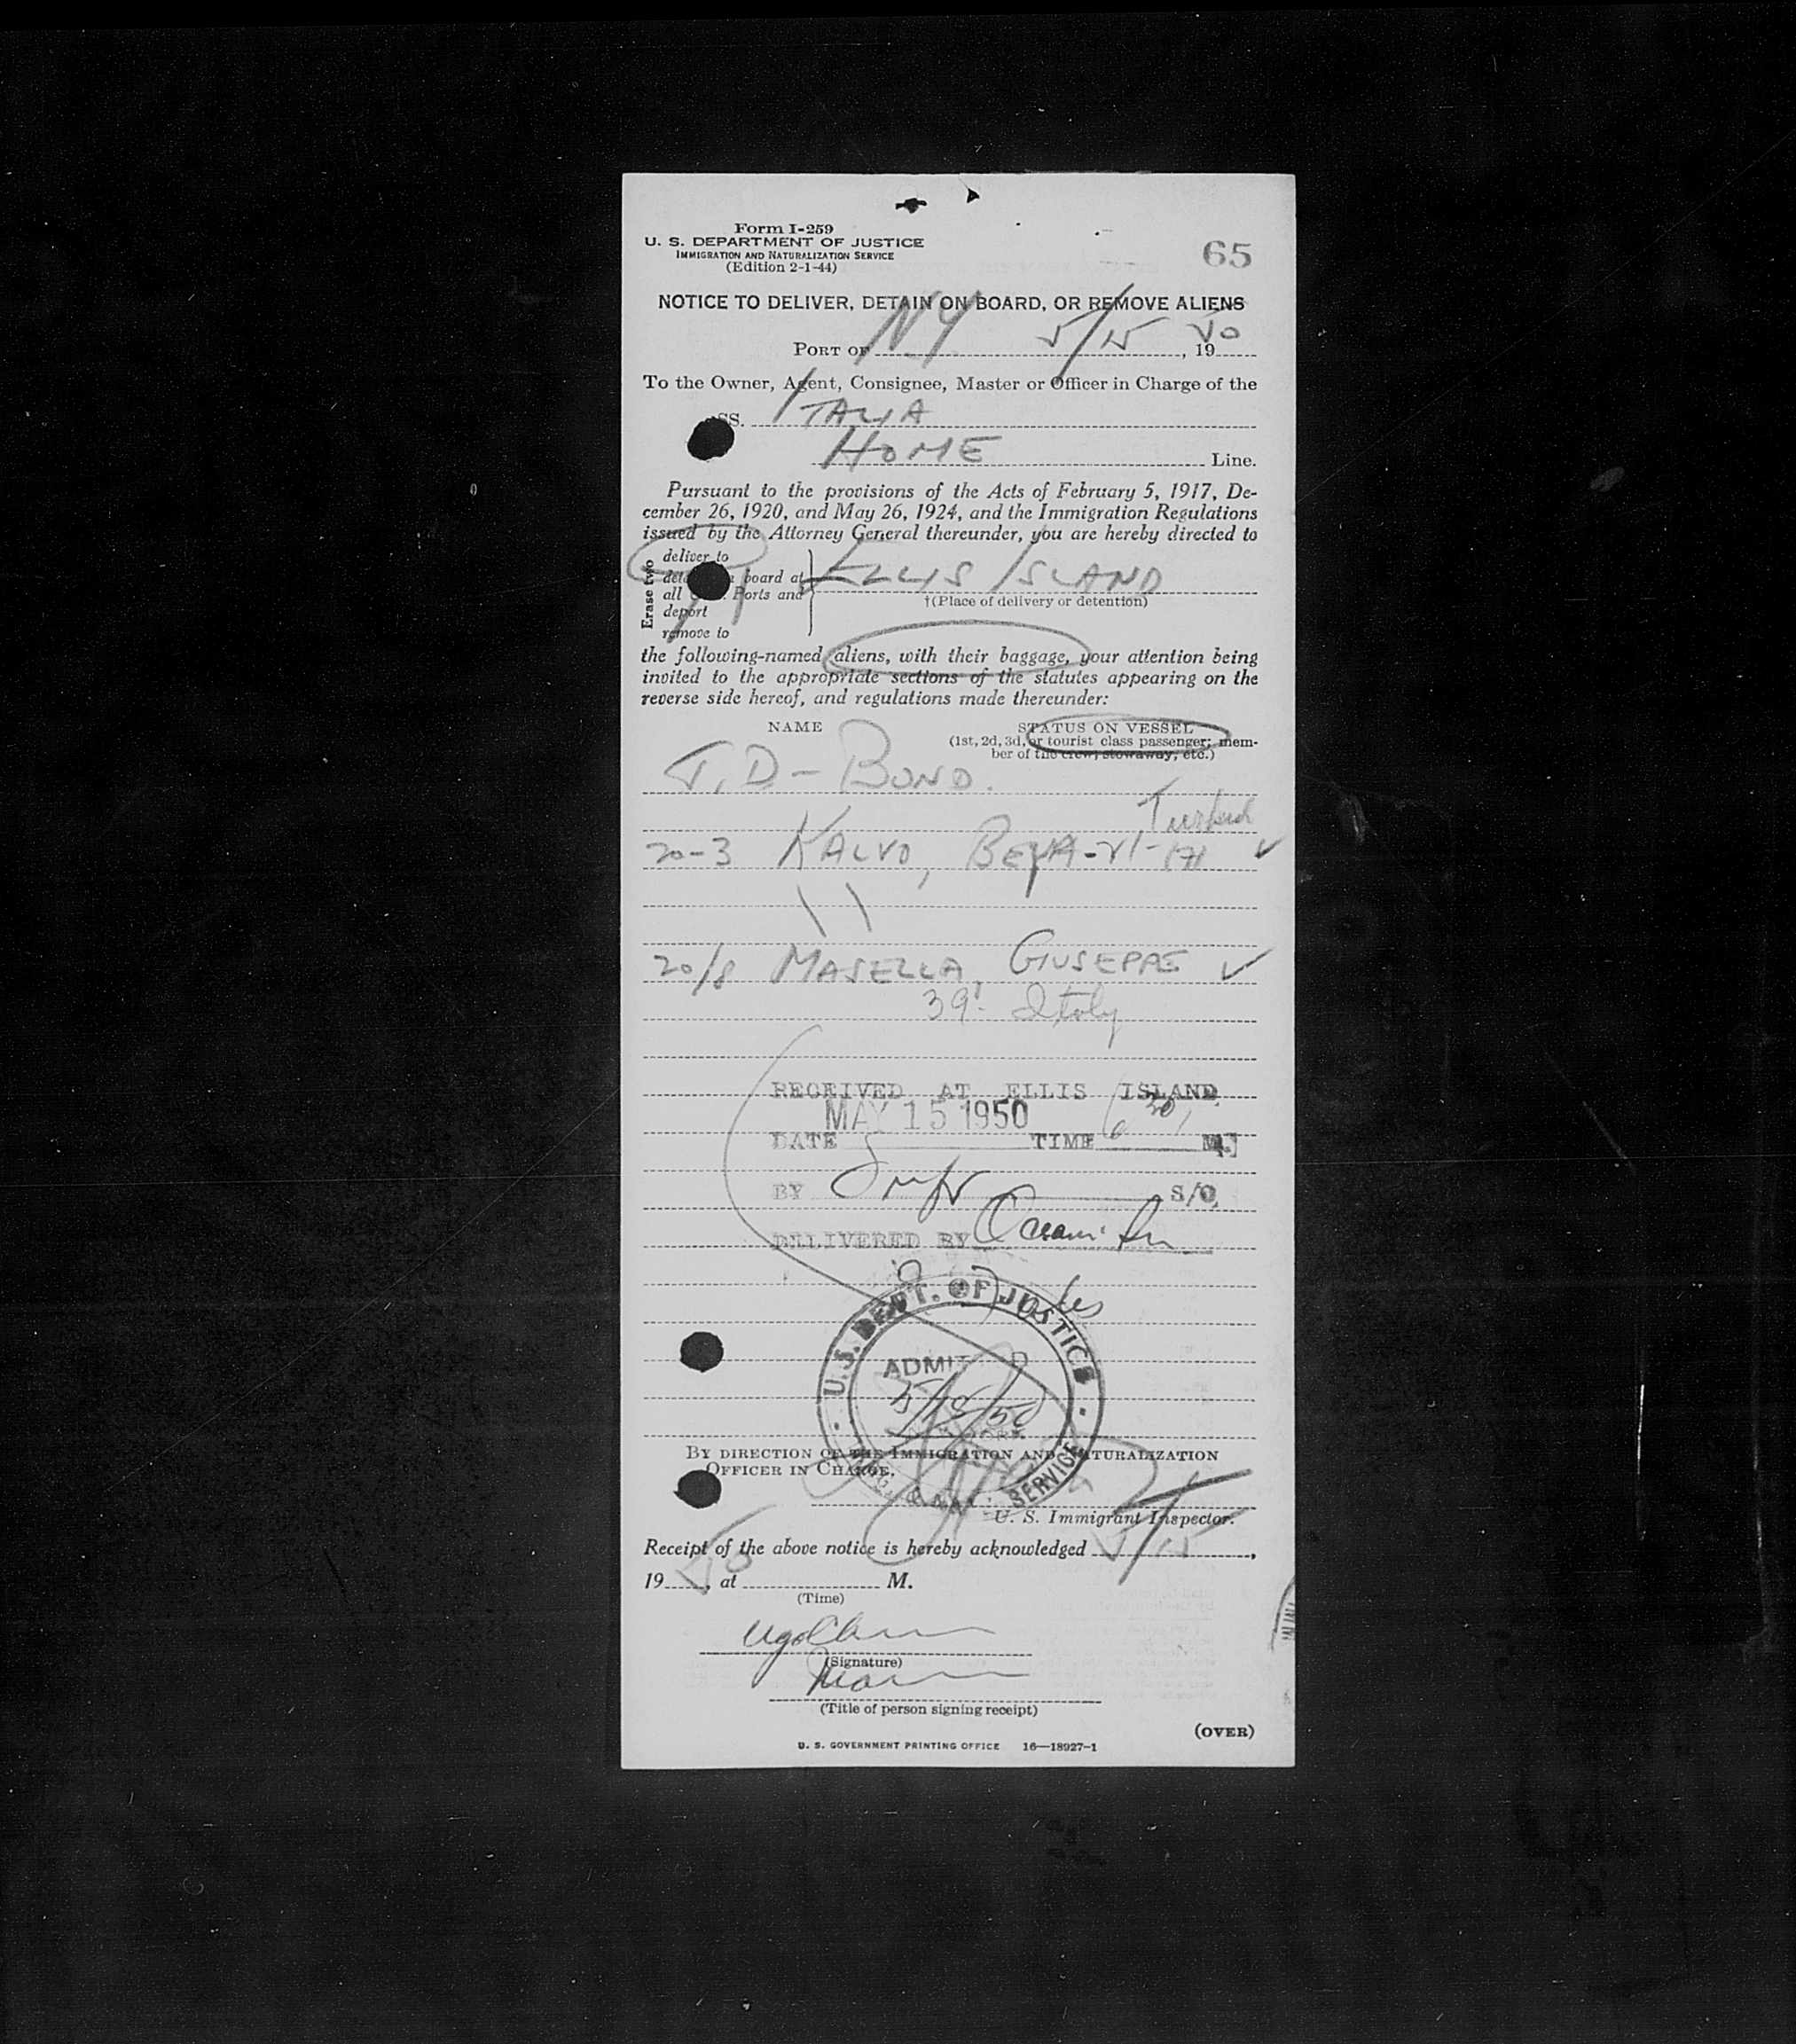 Form I-259
U. S. DEPARTMENT OF JUSTICE
IMMIGRATION AND NATURALIZATION SERVICE
(Edition 2-1-44)
65
NOTICE TO DELIVER, DETAIN ON BOARD, OR REMOVE ALIENS
PORT OF NY 5/15, 1950
To the Owner, Agent, Consignee, Master or Officer in Charge of the
SS. ITALIA
HOME Line.
Pursuant to the provisions of the Acts of February 5, 1917, De-
cember 26, 1920, and May 26, 1924, and the Immigration Regulations
issued by the Attorney General thereunder, you are hereby directed to
Erase two
deliver to
board at
all Ports and
deport
remove to
ELLIS ISLAND
†(Place of delivery or detention)
the following-named aliens, with their baggage, your attention being
invited to the appropriate sections of the statutes appearing on the
reverse side hereof, and regulations made thereunder:
NAME STATUS ON VESSEL
(1st, 2d, 3d, or tourist class passenger; mem-
ber of the crew; stowaway, etc.)
T.D - BOND.
20-3 KALVO, BEYA-21- Turkish ✓
20/8 MASELLA GIUSEPPE ✓
39. Italy
RECEIVED AT ELLIS ISLAND
MAY 15 1950 6 30
DATE TIME M.
BY S/O
DELIVERED BY
U.S. DEPT. OF JUSTICE
ADMITTED
5/18/50
SERVICE
BY DIRECTION OF THE IMMIGRATION AND NATURALIZATION
OFFICER IN CHARGE,
U. S. Immigrant Inspector.
Receipt of the above notice is hereby acknowledged 5/15,
1950, at M.
(Time)
(Signature)
(Title of person signing receipt)
(OVER)
U. S. GOVERNMENT PRINTING OFFICE 16—18927-1